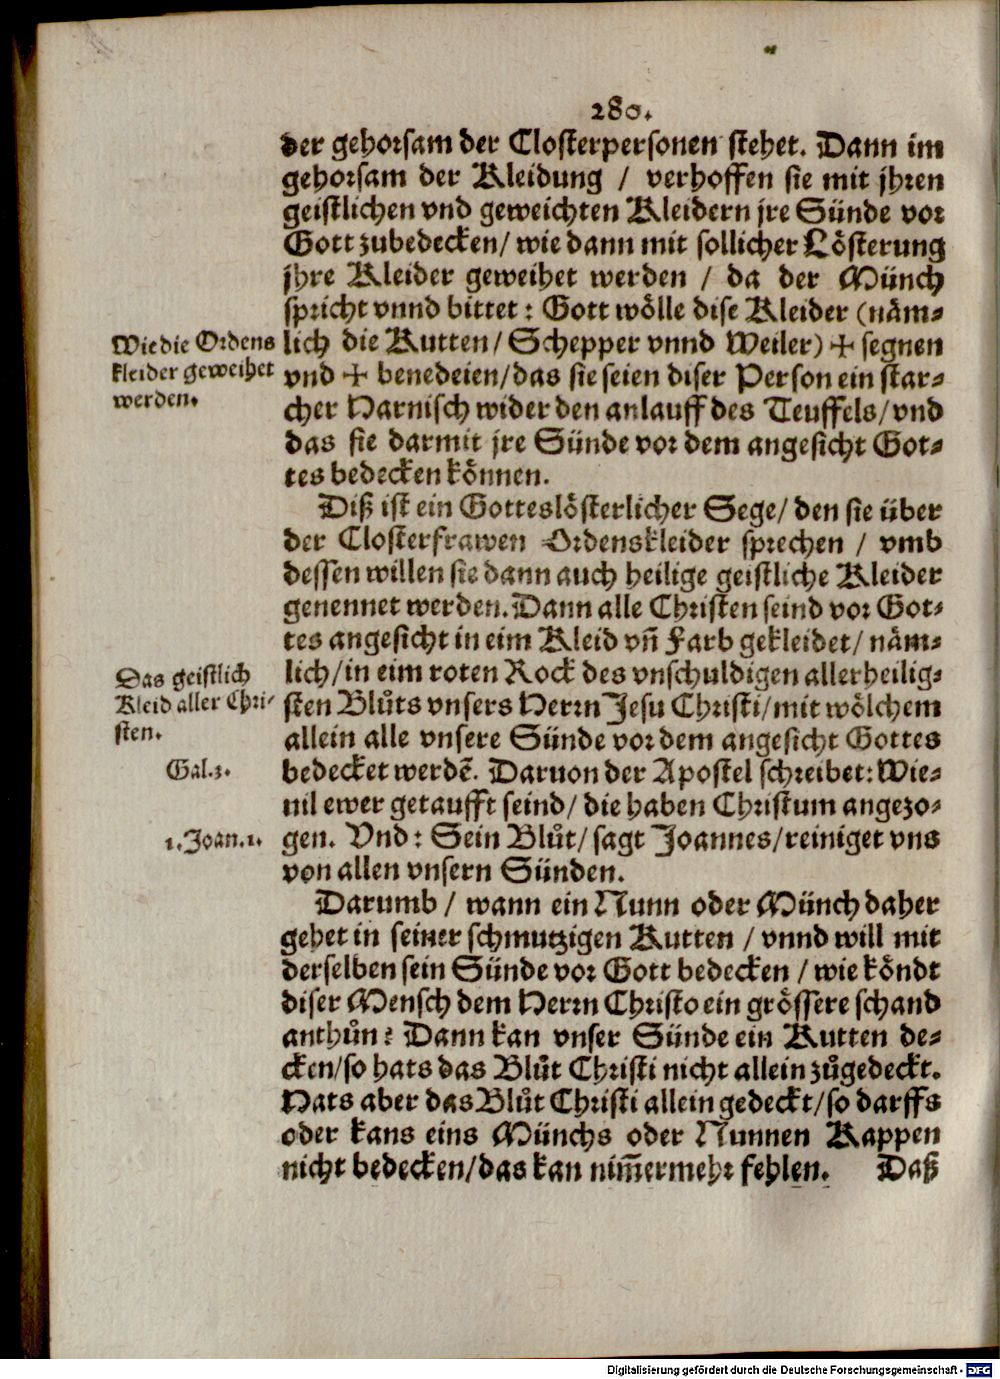 280.
der gehorsam der Closterpersonen stehet. Dann im
gehorsam der Kleidung / verhoffen sie mit jhren
geistlichen vnd geweichten Kleidern jre Sünde vor
Gott zubedecken/ wie dann mit sollicher Lösterung
jhre Kleider geweihet werden / da der Münch
spricht vnnd bittet: Gott wölle dise Kleider (näm-
Wie die Ordens
kleider geweihet
werden.
lich die Kutten/ Schepper vnnd Weiler) ✠ segnen
vnd ✠ benedeien/das sie seien diser Person ein star-
cher Harnisch wider den anlauff des Teuffels/vnd
das sie darmit jre Sünde vor dem angesicht Got-
tes bedecken können.
Diß ist ein Gotteslösterlicher Sege/ den sie über
der Closterfrawen Ordenskleider sprechen / vmb
dessen willen sie dann auch heilige geistliche Kleider
genennet werden. Dann alle Christen seind vor Got-
tes angesicht in eim Kleid vñ Farb gekleidet/ näm-
Das geistlich
Kleid aller Chri-
sten.
lich/in eim roten Rock des vnschuldigen allerheilig-
sten Blůts vnsers Herrn Jesu Christi/mit wölchem
allein alle vnsere Sünde vor dem angesicht Gottes
Gal.3.
bedecket werdẽ. Daruon der Apostel schreibet: Wie-
uil ewer getaufft seind/ die haben Christum angezo-
1.Joan.1.
gen. Vnd: Sein Blůt/ sagt Joannes/reiniget vns
von allen vnsern Sünden.
Darumb / wann ein Nunn oder Münch daher
gehet in seiner schmutzigen Kutten / vnnd will mit
derselben sein Sünde vor Gott bedecken / wie köndt
diser Mensch dem Herrn Christo ein grössere schand
anthůn? Dann kan vnser Sünde ein Kutten de-
cken/so hats das Blůt Christi nicht allein zůgedeckt.
Hats aber das Blůt Christi allein gedeckt/so darffs
oder kans eins Münchs oder Nunnen Kappen
nicht bedecken/das kan nim̃ermehr fehlen. Daß
Digitalisierung gefördert durch die Deutsche Forschungsgemeinschaft - DFG